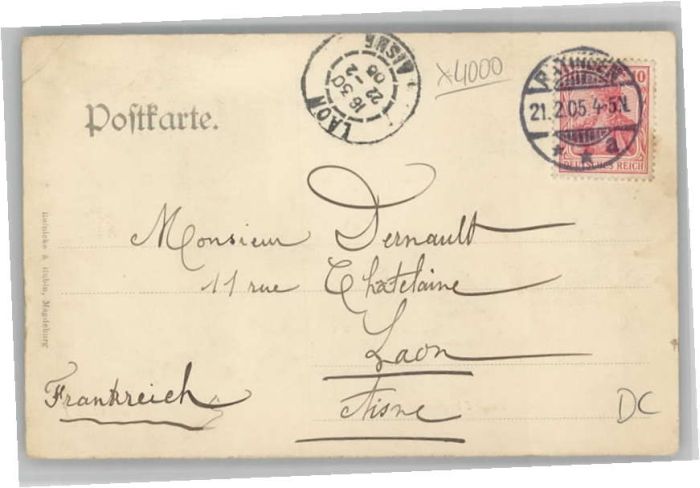 Postkarte.
LAON
AISNE
16 30
22-2
05
x4000
RATINGEN
21.2.05 4-5N.
* * a
10
DEUTSCHES REICH
Monsieur Dernault
11 rue Chatelaine
Laon
Aisne
Frankreich
DC
Magdeburg